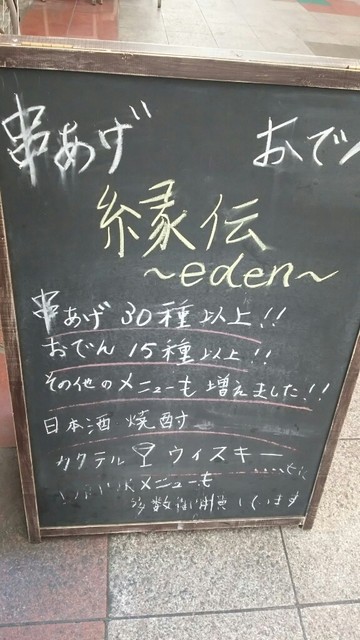 串あげ おでん
縁伝
~eden~
串あげ 30種以上!!
おでん 15種以上!!
その他のメニューも増えました!!
日本酒 焼酎
カクテル ウィスキー
メニューも
多数 しています